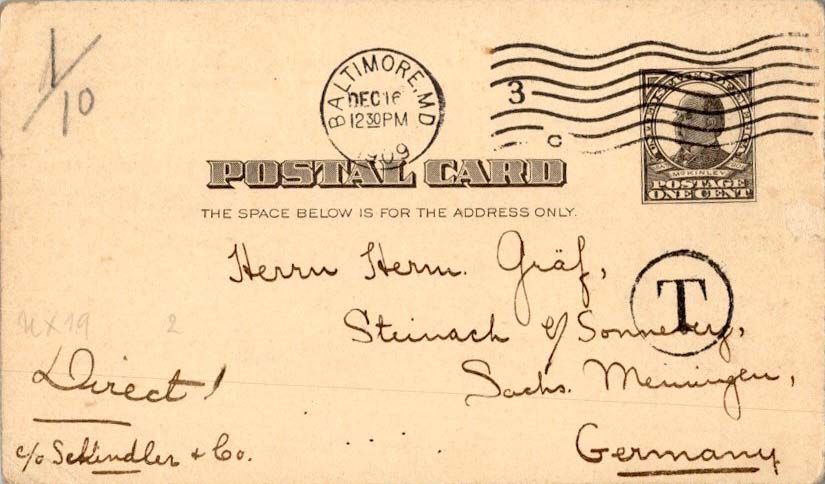 1/10
BALTIMORE, MD
DEC 16
12 30 PM
1909
3
C
McKINLEY
POSTAGE
ONE CENT
POSTAL CARD
THE SPACE BELOW IS FOR THE ADDRESS ONLY.
Herrn Herm. Gräf,
T
Steinach a/ Sonneberg,
UX19 2
Sachs. Meiningen,
Direct!
Germany
c/o Schindler & Co.